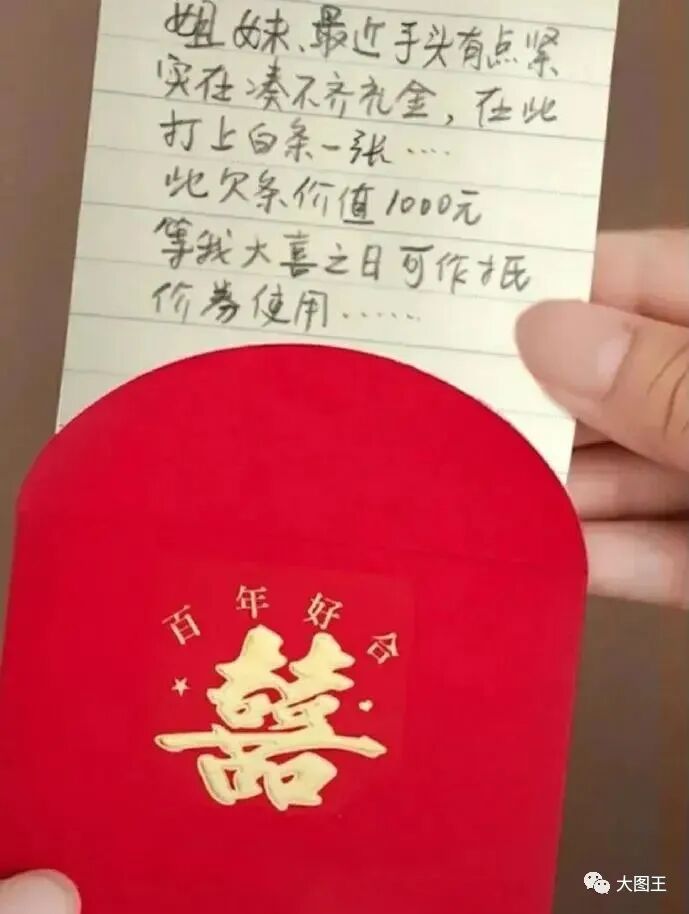 姐妹、最近手头有点紧
实在凑不齐礼金，在此
打上白条一张……
此欠条价值1000元
等我大喜之日可作抵
价券使用……
百年好合
囍
大图王